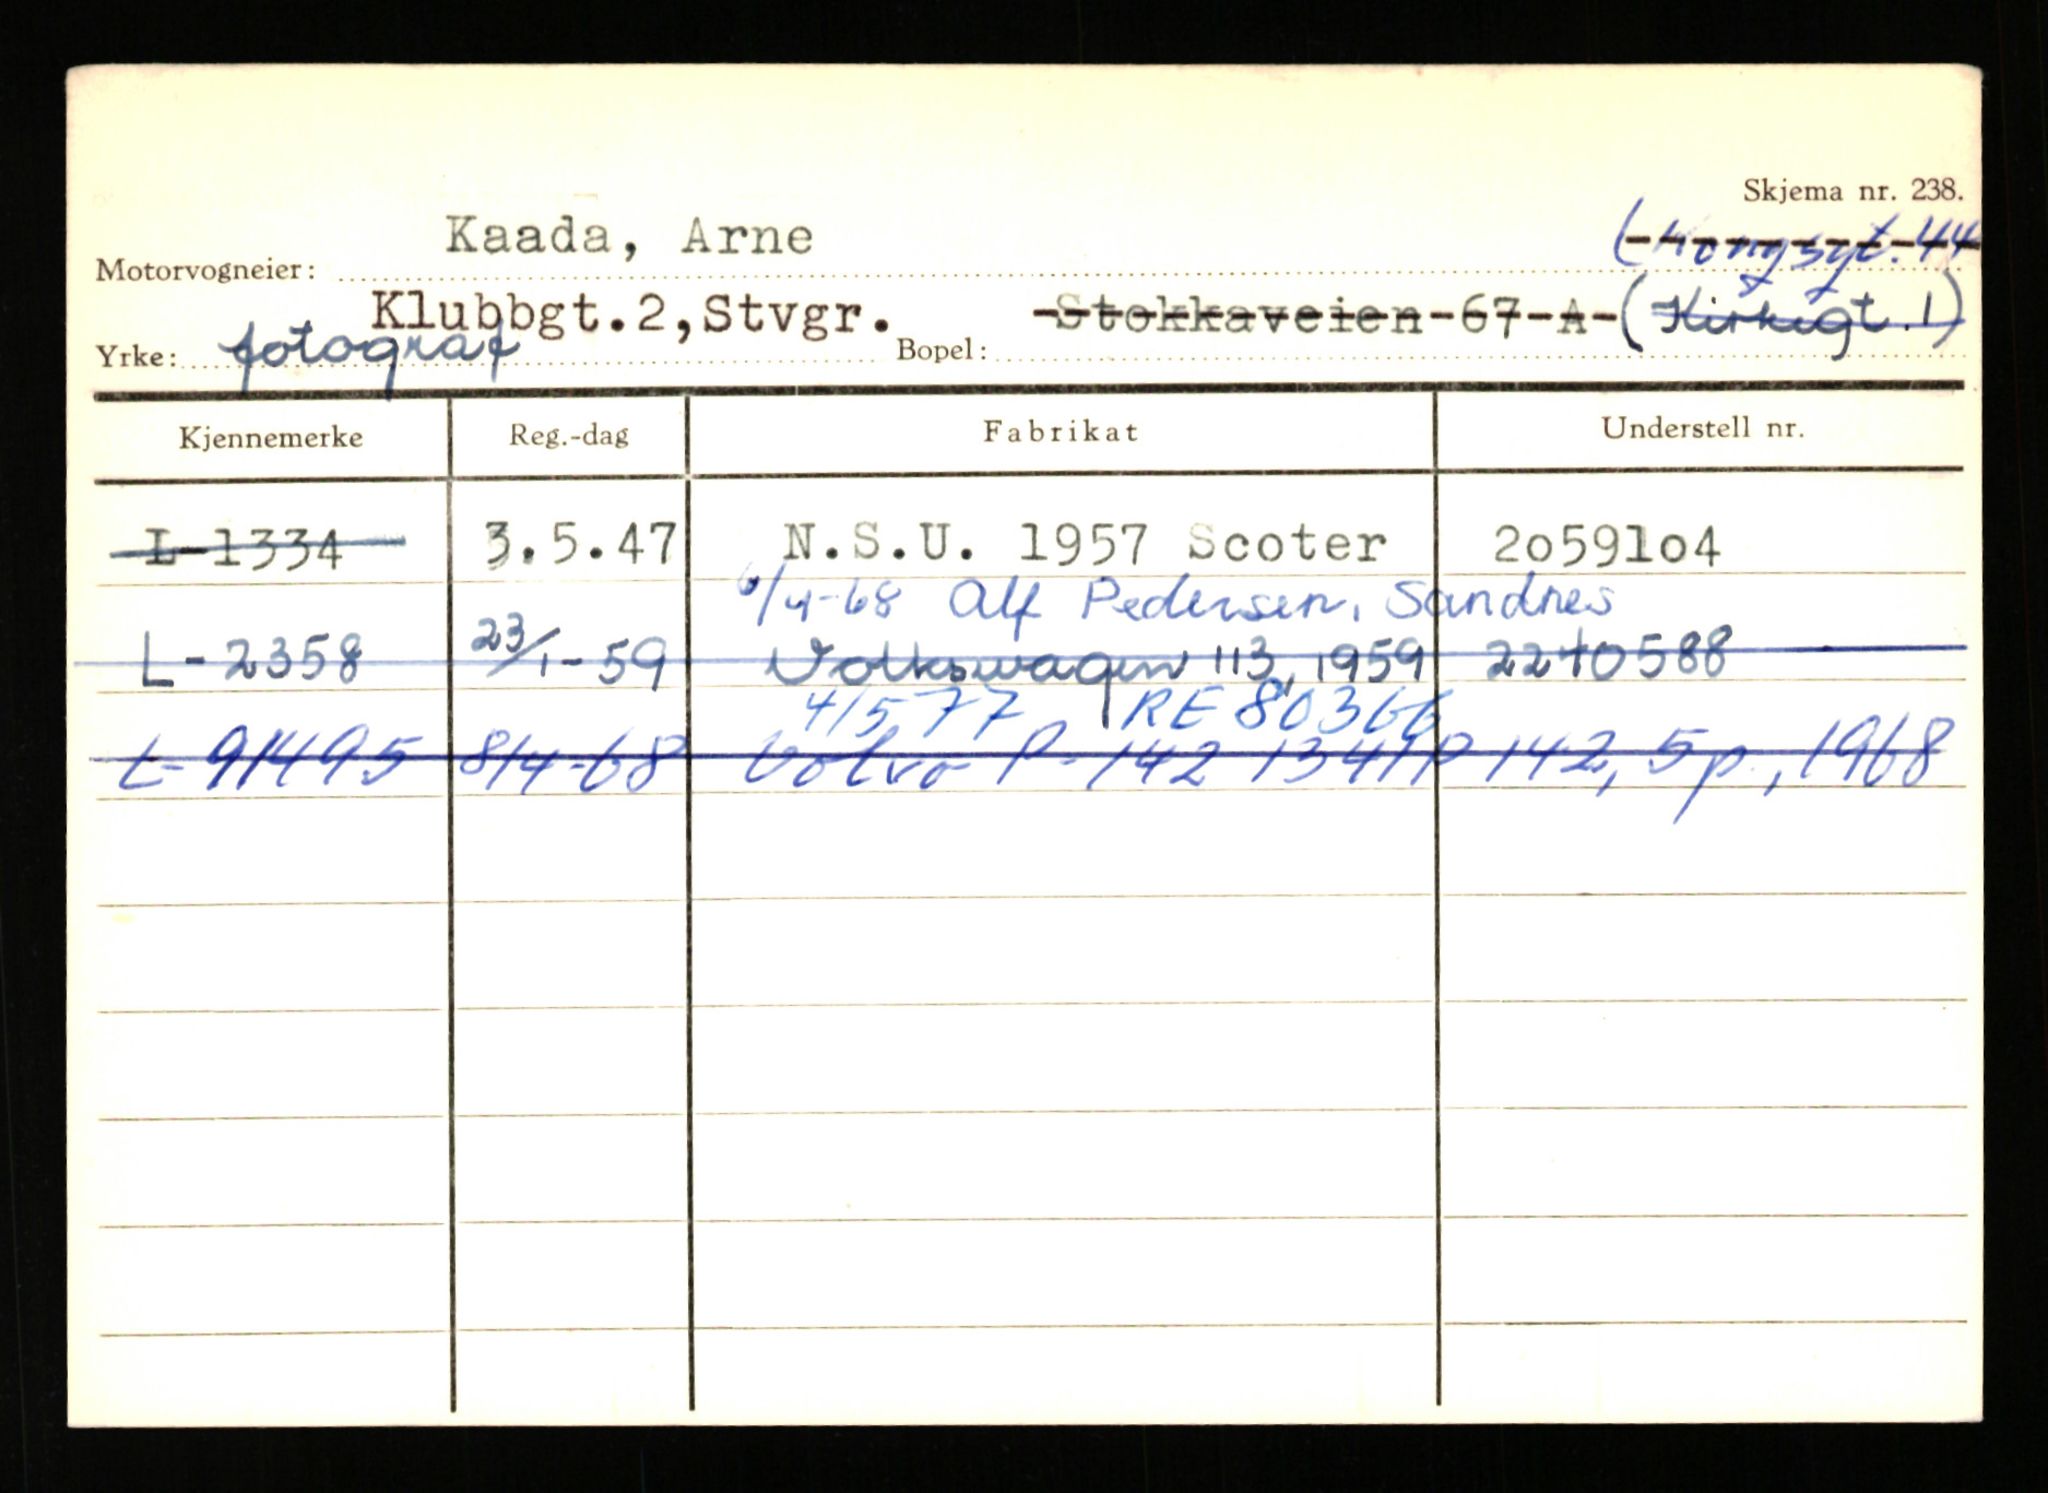 Skjema nr. 238.
(Kongsgt. 44
Motorvogneier: Kaada, Arne
Klubbgt.2,Stvgr. Stokkaveien 67 A (Kirkegt. 1)
Yrke: fotograf Bopel:
Kjennemerke Reg.-dag Fabrikat Understell nr.
L-1334 3.5.47 N.S.U. 1957 Scoter 2o591o4
6/4-68 Alf Pedersen, Sandnes
L-2358 23/1-59 Volkswagen 113, 1959 2240588
4/5 77 RE 80366
L-91495 8/4-68 Volvo P-142 1341P 142, 5p, 1968